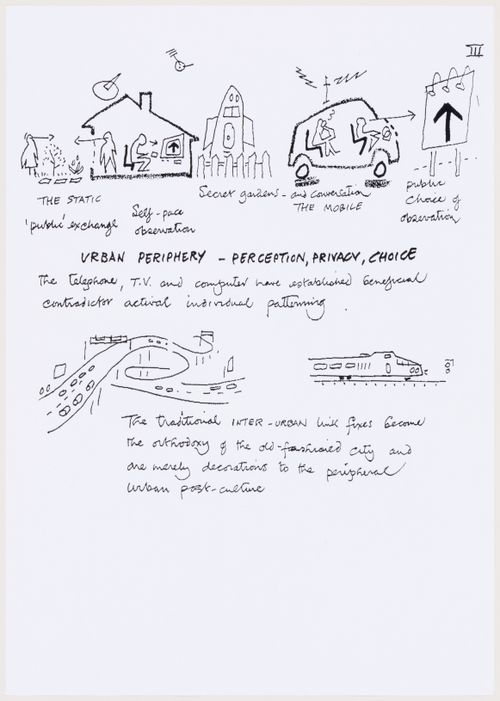 III
THE STATIC
'public' exchange
Self-pace
observation
Secret gardens - and conversation
THE MOBILE
public
choice of
observation
URBAN PERIPHERY - PERCEPTION, PRIVACY, CHOICE
The telephone, T.V. and computer have established beneficial
contradictor actival individual patterning .
The traditional INTER-URBAN link fixes become
the orthodoxy of the old-fashioned city and
are merely decorations to the peripheral
urban post-culture